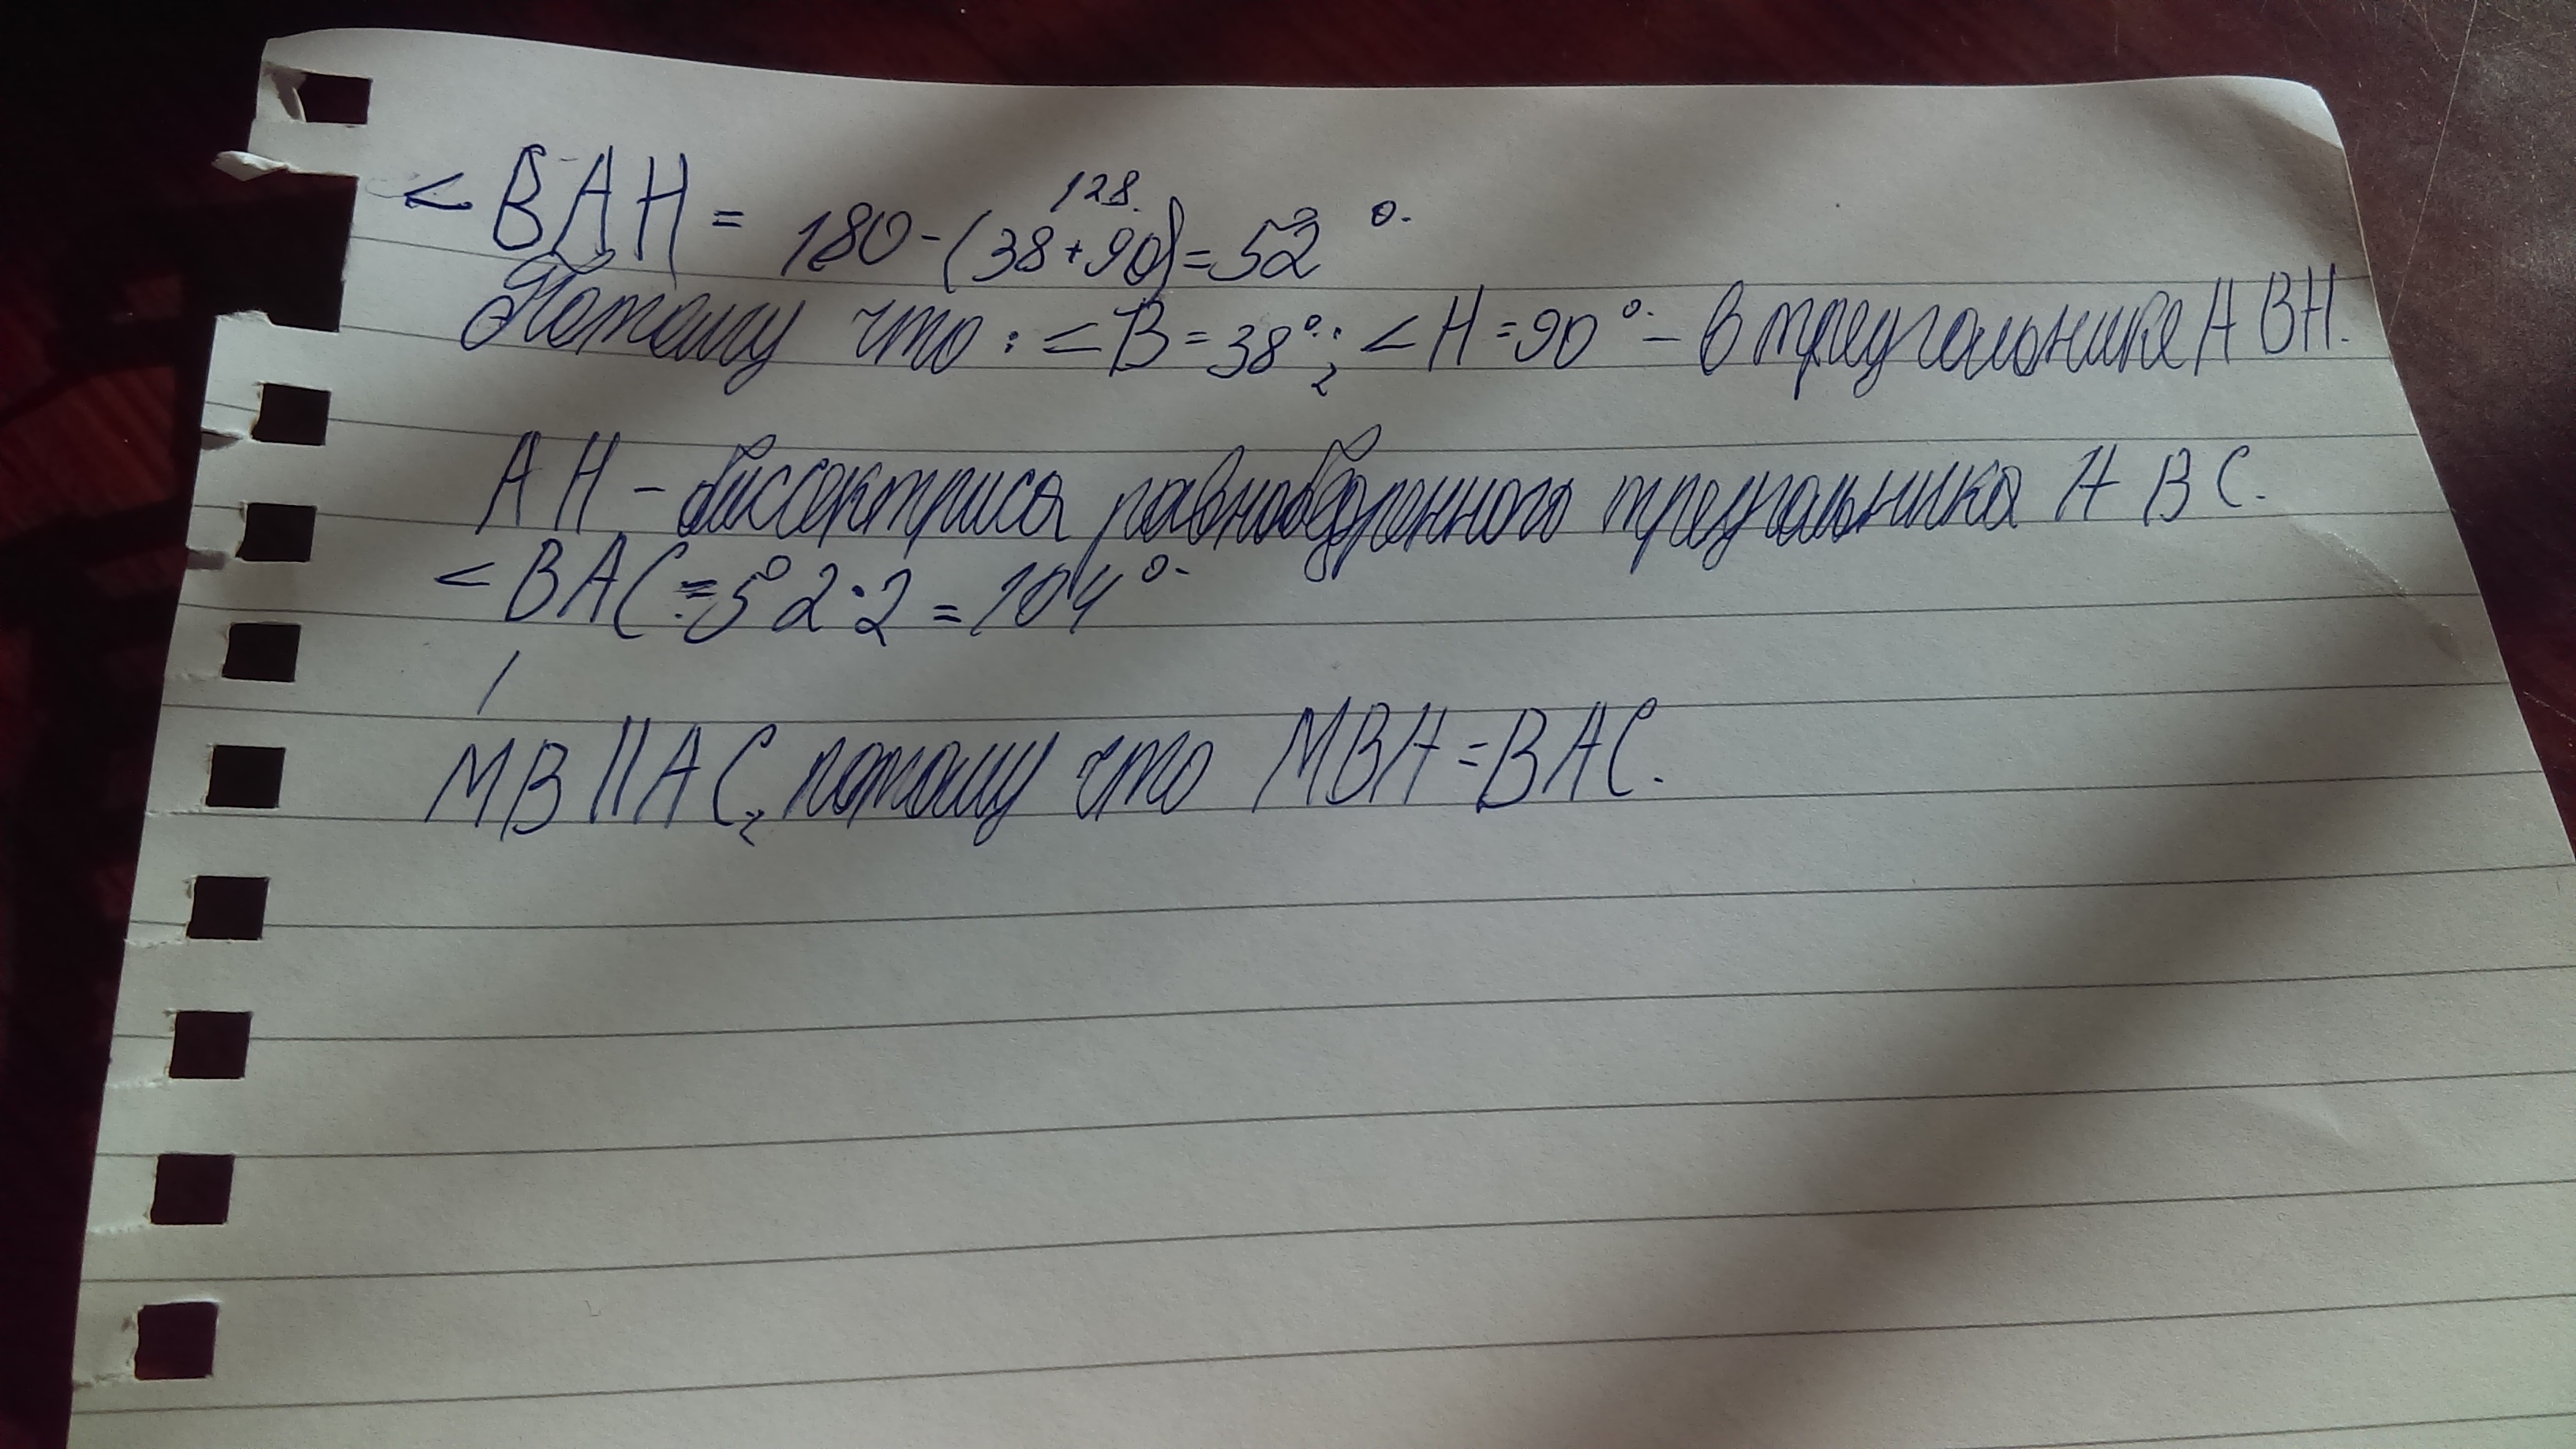 128.
< BAH = 180 - (38 + 90) = 52 °.
Потому что: < B = 38°; < H = 90° - в треугольнике ABH.
AH - биссектриса равнобедренного треугольника ABC.
< BAC = 52 · 2 = 104°.
MB || AC, потому что MBA = BAC.